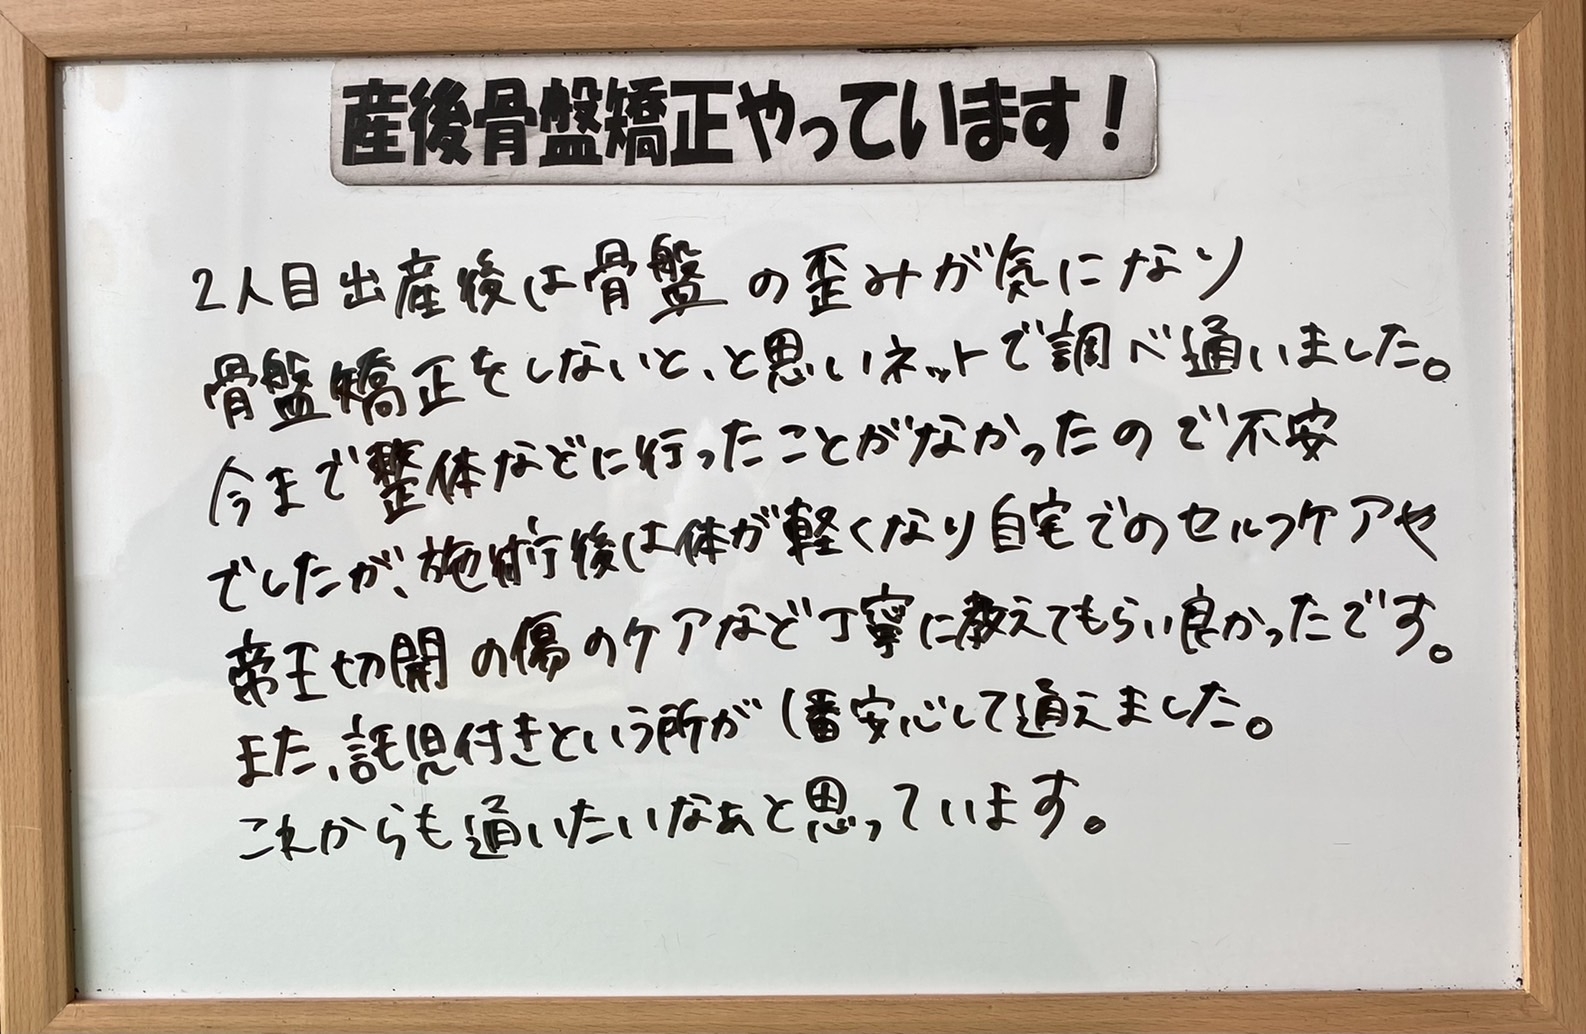 産後骨盤矯正やっています！
2人目出産後は骨盤の歪みが気になり
骨盤矯正をしないと、と思いネットで調べ通いました。
今まで整体などに行ったことがなかったので不安
でしたが、施術後は体が軽くなり自宅でのセルフケアや
帝王切開の傷のケアなど丁寧に教えてもらい良かったです。
また、託児付きという所が1番安心して通えました。
これからも通いたいなぁと思っています。